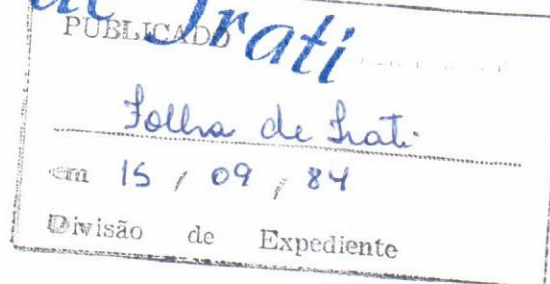 de Irati
PUBLICADO
Folha de Irati
em 15 / 09 / 84
Divisão de Expediente